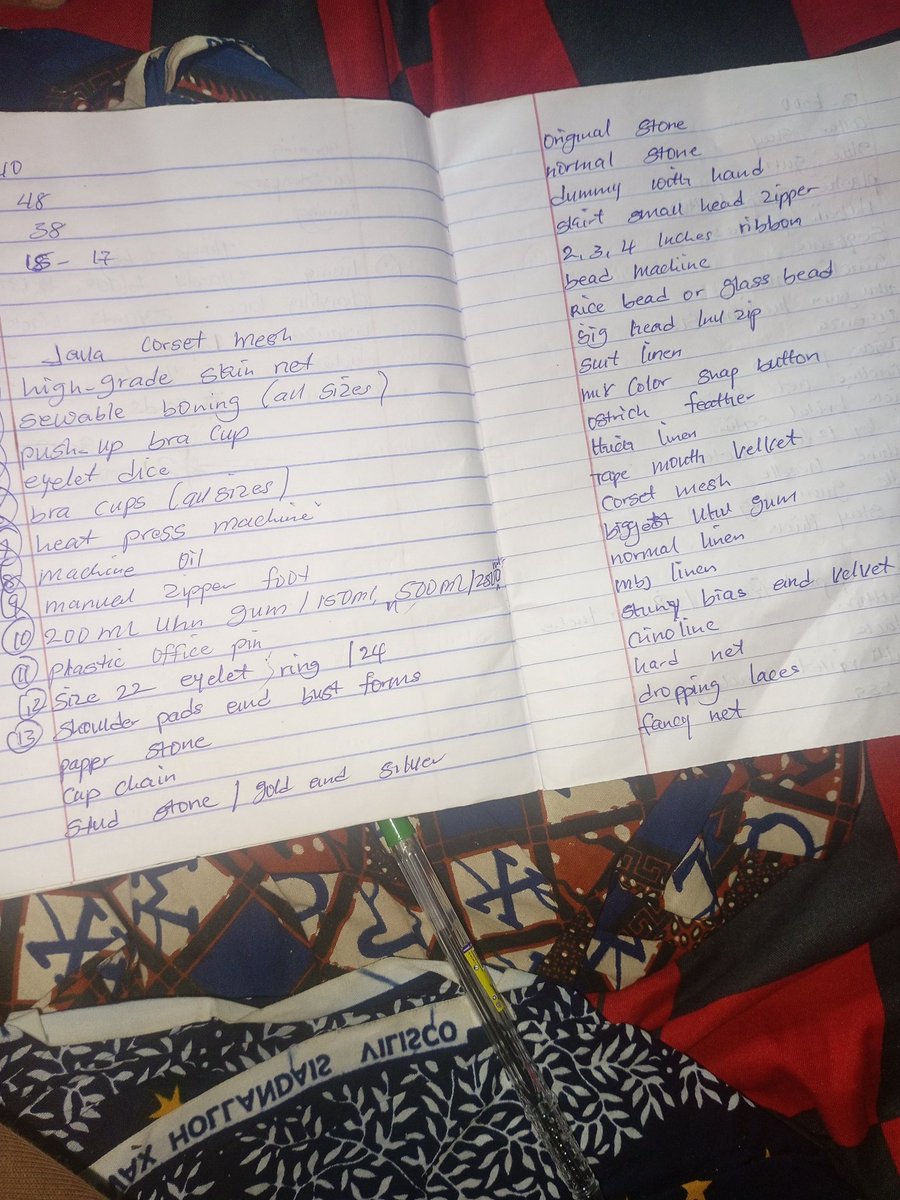 40
48
58
15 - 17
corset mesh
high-grade skin net
sewable boning (all sizes)
push-up bra cup
eyelet dice
bra cups (all sizes)
heat press machine
8 machine oil
9 manual zipper foot
10 200ml Uhu gum / 150ml, 500ml /
11 plastic office pin
12 Size 22 eyelet ring / 24
13 Shoulder pads and bust forms
paper stone
Cup chain
Stud stone / gold and silver
original stone
normal stone
dummy with hand
skirt small head zipper
2, 3, 4 Inches ribbon
bead machine
Rice bead or glass bead
big head zip
suit linen
color snap button
ostrich feather
linen
Tape mouth velvet
Corset mesh
biggest Uhu gum
normal linen
linen
bias and velvet
Crinoline
hard net
dropping laces
fancy net
WAX HOLLANDAIS VLISCO